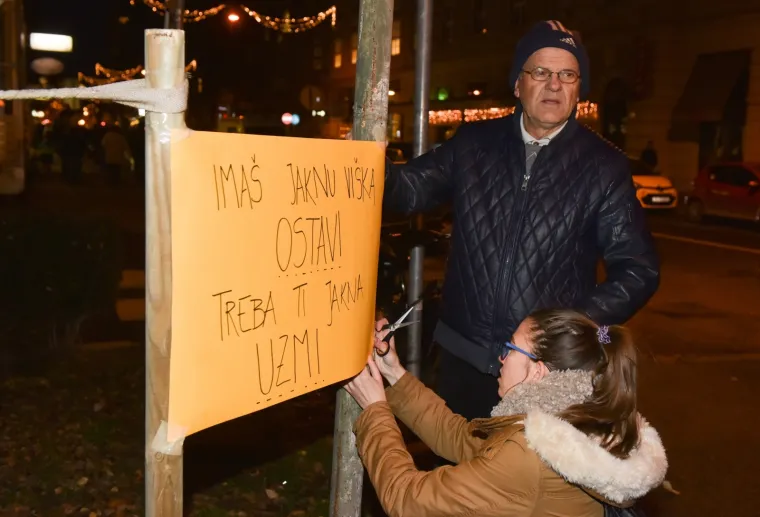 IMAŠ JAKNU VIŠKA
OSTAVI
TREBA TI JAKNA
UZMI